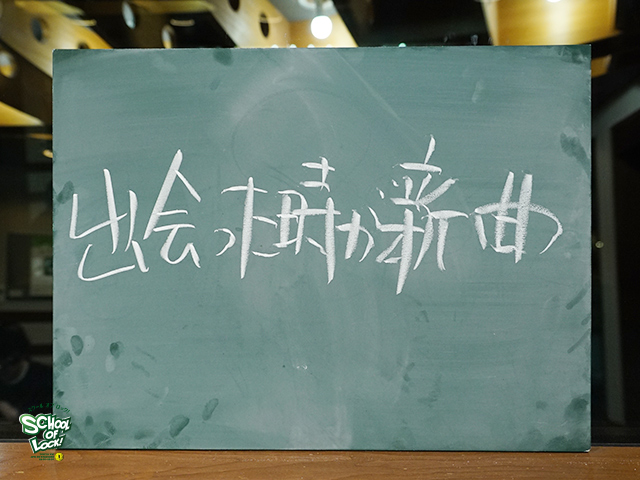 出会った時が新曲
SCHOOL
OF
LOCK!